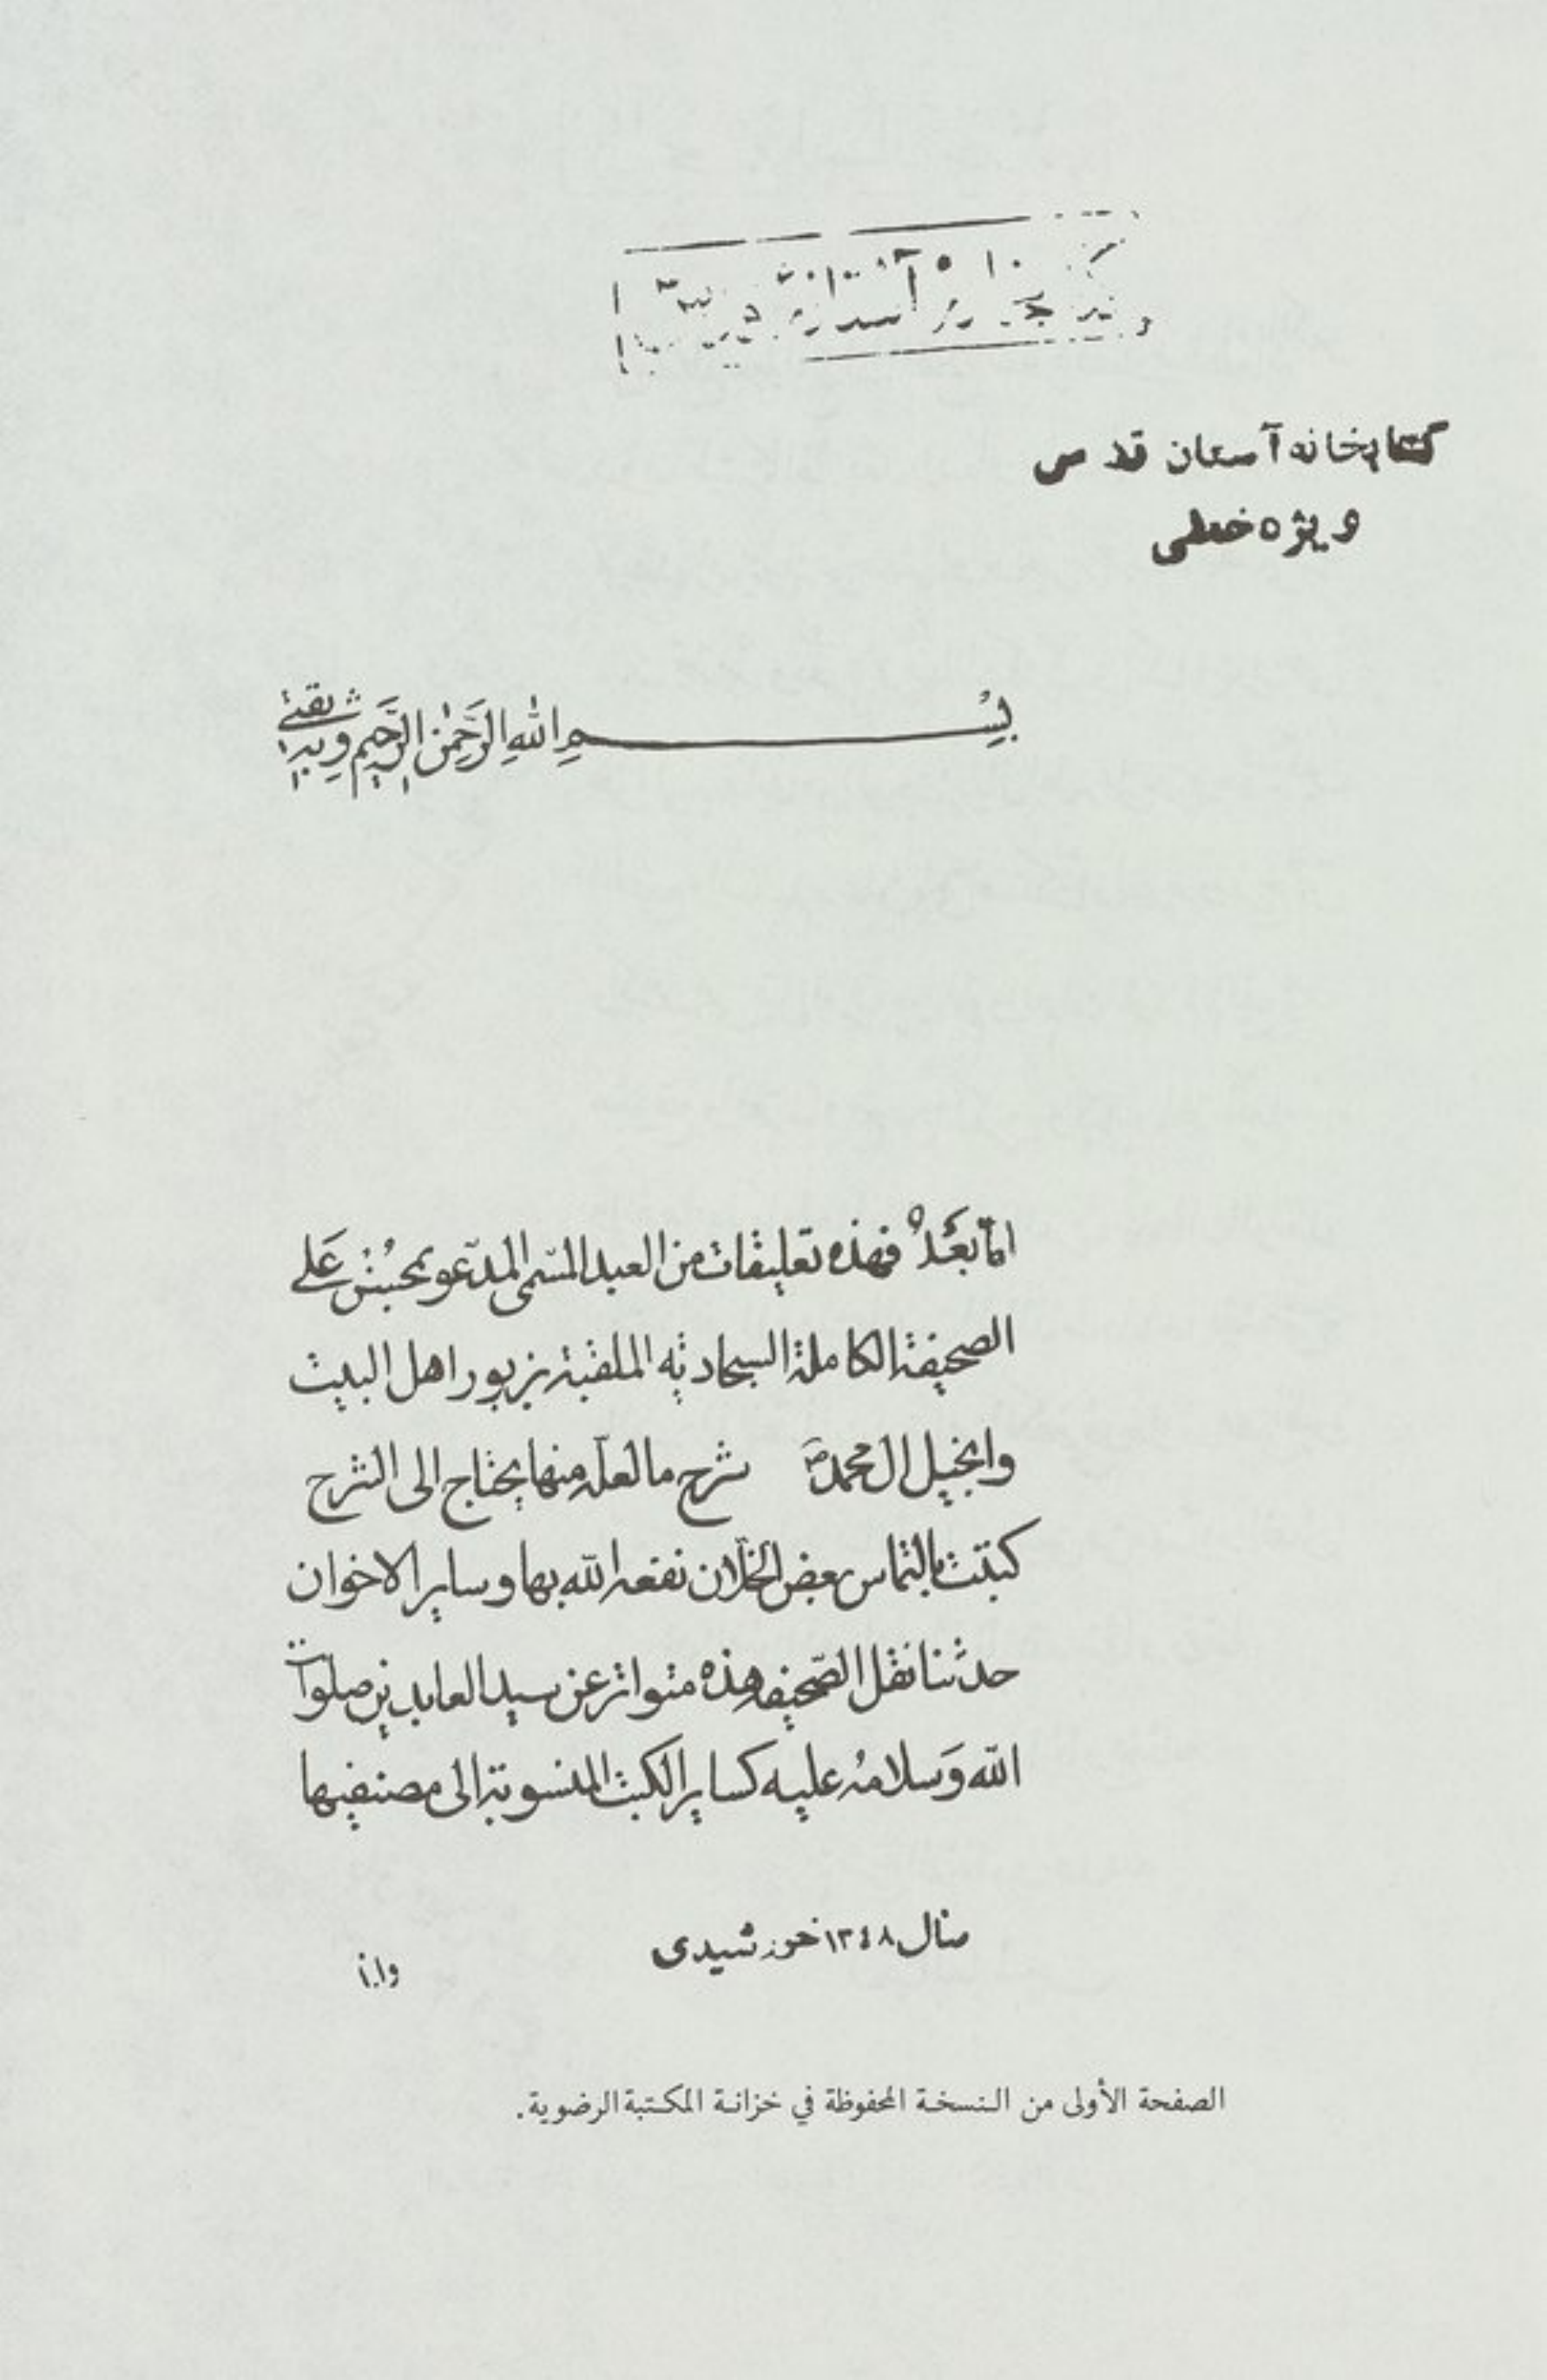 كتابخانه آستان قدس
ويژه خطى
بِسْمِ اللهِ الرَّحْمٰنِ الرَّحِيمِ وبه ثقتي
امّا بَعْدُ فهذه تعليقات من العبد المسّمى المدعو بمحسن عَلى
الصحيفة الكاملة السجاديه الملقبة بزبور اهل البيت
وانجيل ال محمد ص شرح مالعلّه منها يحتاج الى الشرح
كتبت بالتماس بعض الخلّان نفعه اللّه بها وساير الاخوان
حدثنا نقل الصّحيفه هذه متواتر عن سيد العابدين صلوات
اللّه وَسلامُه عليه كساير الكتب المنسوبة الى مصنفيها
سال ١٣٤٨ خورشيدى
وان
الصفحة الأولى من النسخة المحفوظة في خزانة المكتبة الرضوية.